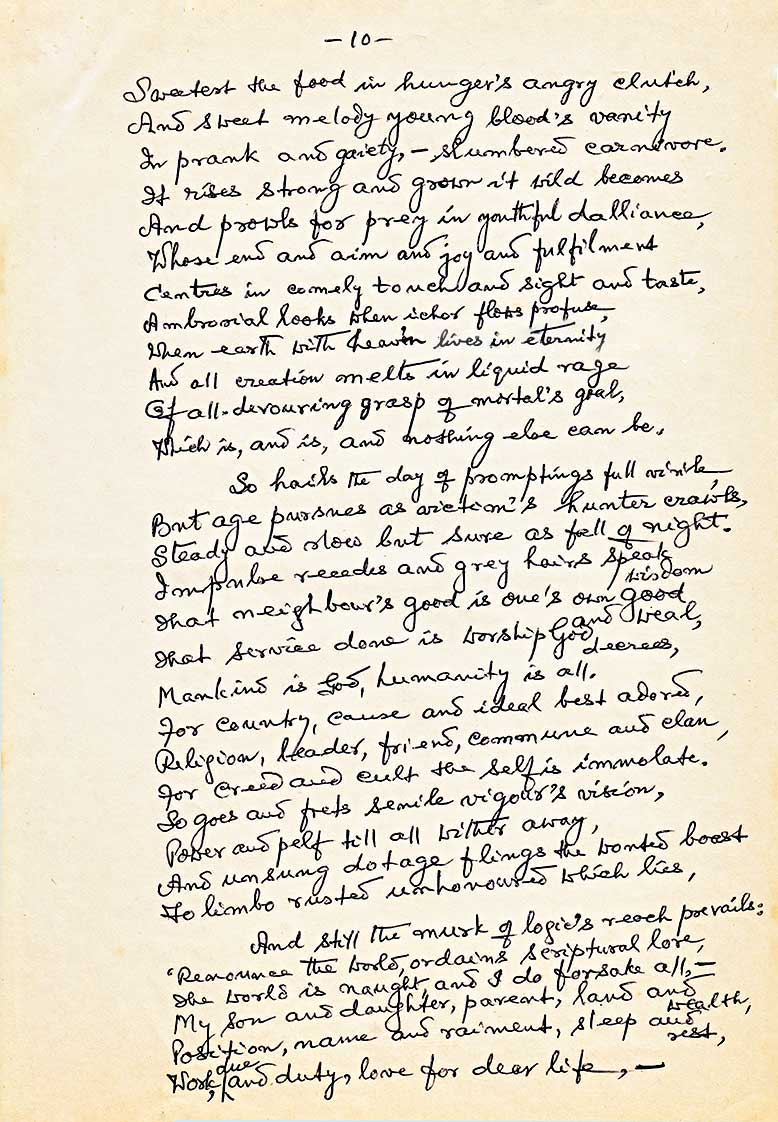 -10-
Sweetest the food in hunger's angry clutch,
And sweet melody young blood's vanity
In prank and gaiety, — slumbered carnivore.
It rises strong and grown it wild becomes
And prowls for prey in youthful dalliance,
Whose end and aim and joy and fulfilment
Centres in comely touch and sight and taste,
Ambrosial looks when ichor flows profuse,
When earth with heaven lives in eternity
And all creation melts in liquid rage
Of all-devouring grasp of mortal's goal,
Which is, and is, and nothing else can be.
So hails the day of promptings full virile,
But age pursues as victim's hunter crawls,
Steady and slow but sure as fall of night.
Impulse recedes and grey hairs speak wisdom
That neighbour's good is one's own good and weal,
That service done is worship God decrees,
Mankind is God, humanity is all.
For country, cause and ideal best adored,
Religion, leader, friend, commune and clan,
For creed and cult the self is immolate.
So goes and frets senile vigour's vision,
Power and pelf till all wither away,
And unsung dotage flings the wonted boast
To limbo rusted unhonoured which lies,
And still the murk of logic's reach prevails:
'Renounce the world, ordains scriptural lore,
The world is naught and I do forsake all, —
My son and daughter, parent, land and wealth,
Position, name and raiment, sleep and rest,
Work, due and duty, love for dear life, —